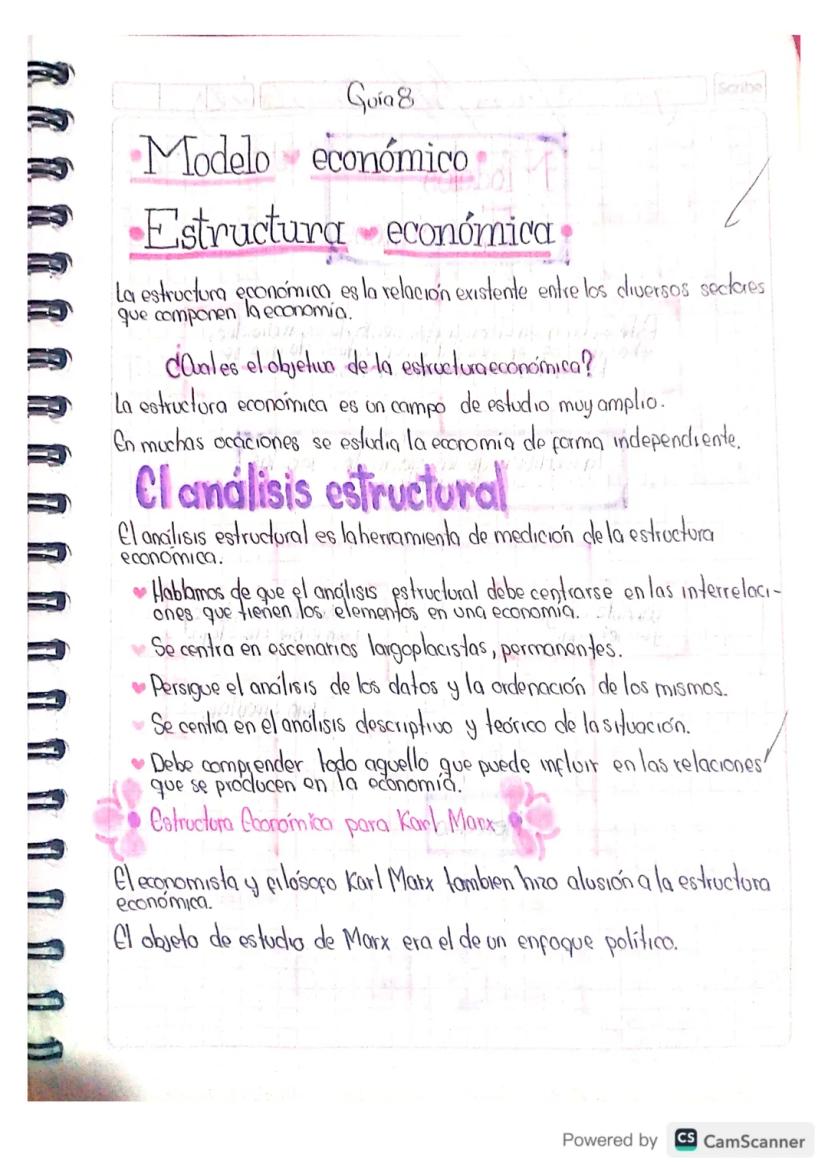 Guía 8
Scribe
Modelo económico
Estructura económica
La estructura económica es la relación existente entre los diversos sectores
que componen la economía.
¿Cual es el objetivo de la estructura económica?
La estructura económica es un campo de estudio muy amplio.
En muchas ocaciones se estudia la economía de forma independiente.
El análisis estructural
El análisis estructural es la herramienta de medición de la estructura
económica.
Hablamos de que el análisis estructural debe centrarse en las interrelaci-
ones que tienen los elementos en una economía.
Se centra en escenarios largoplacistas, permanentes.
Persigue el análisis de los datos y la ordenación de los mismos.
Se centra en el análisis descriptivo y teórico de la situación.
Debe comprender todo aquello que puede influir en las relaciones
que se producen en la economía.
Estructura Económica para Karl Marx
El economista y filósofo Karl Marx tambien hizo alusión a la estructura
económica.
El objeto de estudio de Marx era el de un enfoque político.
Powered by CS CamScanner